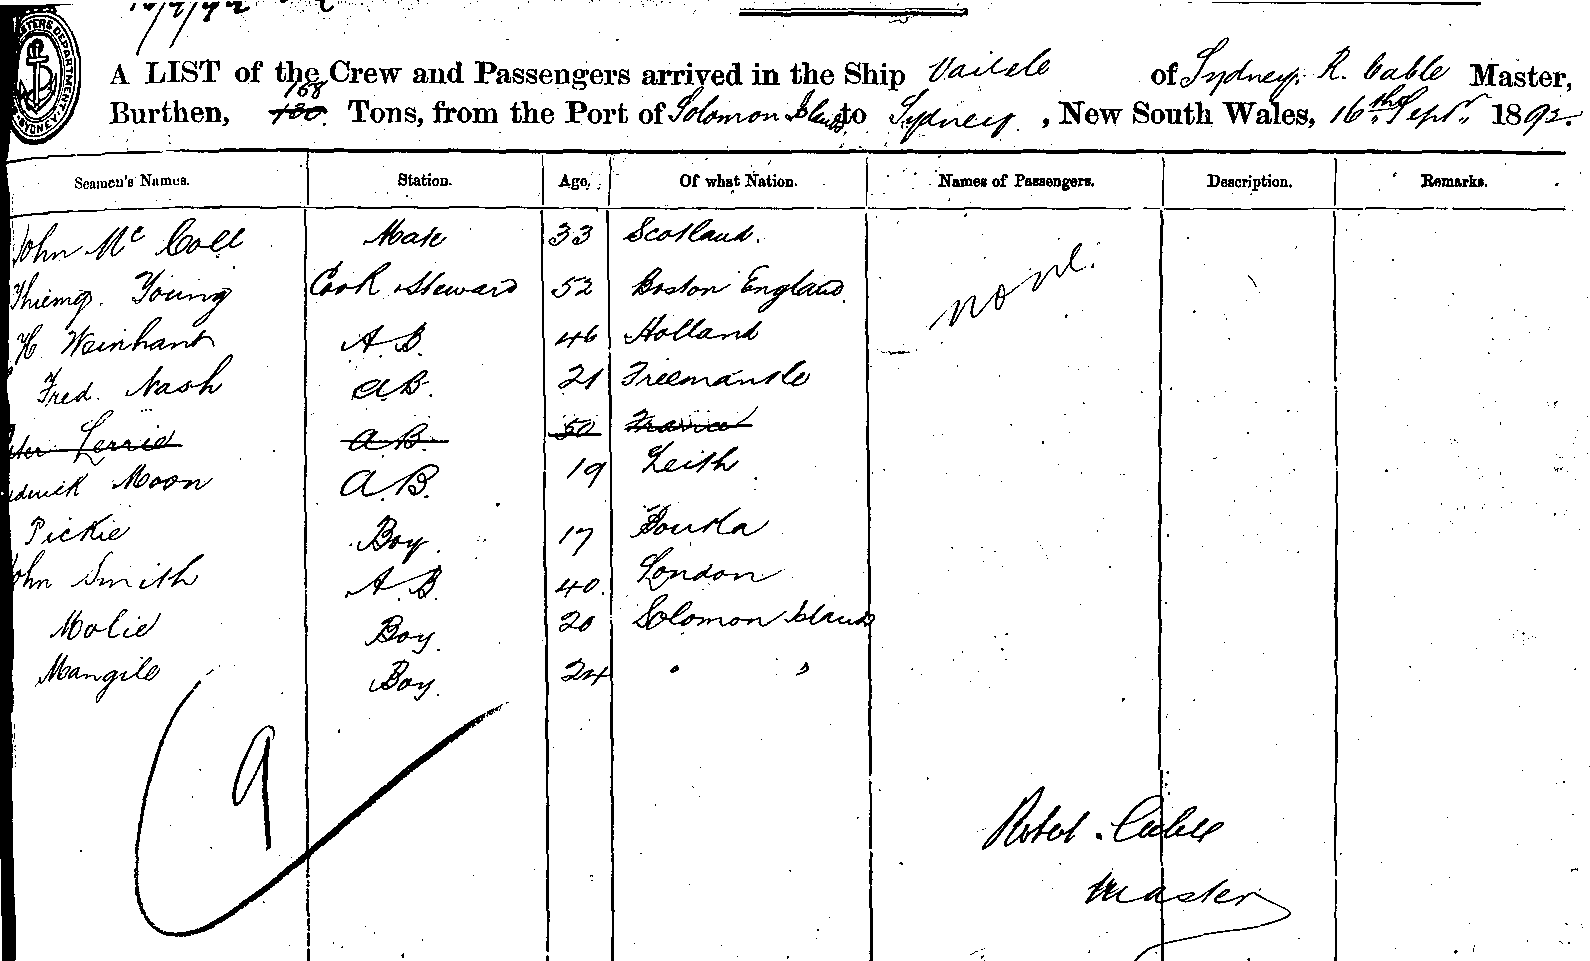 A LIST of the Crew and Passengers arrived in the Ship Vailele of Sydney, R. Cable Master,
Burthen, 158 130 Tons, from the Port of Solomon Islands to Sydney, New South Wales, 16th Septr 1892.
Seamen's Names. Station. Age. Of what Nation. Names of Passengers. Description. Remarks.
John Mc Coll Mate 33 Scotland. none.
Young Cook & Steward 52 Boston England.
H Weinhant A.B. 46 Holland
Fred. Nash A.B. 21 Freemantle
Peter Lerrie A.B. 50 France
Moon A.B. 19 Leith
Pickie Boy. 17 Bouka
John Smith A.B. 40. London
Molie Boy. 20 Solomon Islands
Mangile Boy. 24 " "
9
Robet. Cable
Master